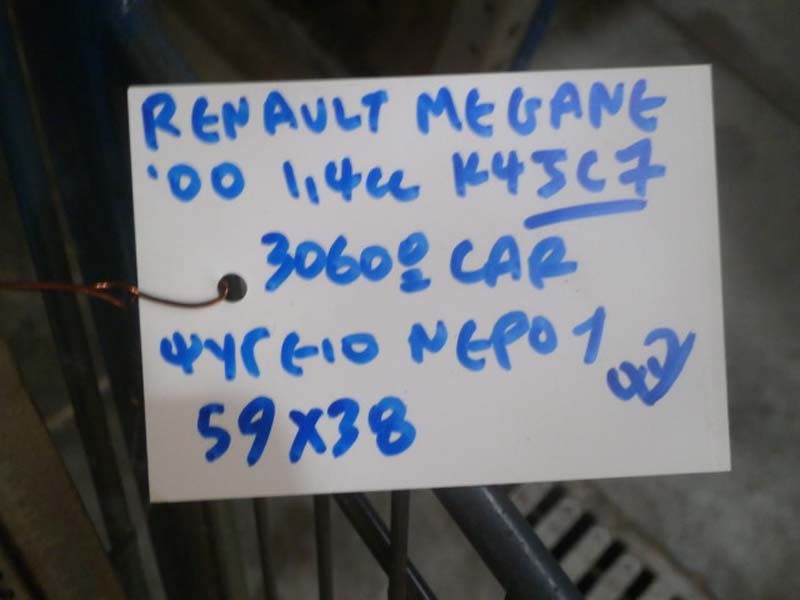 RENAULT MEGANE
'00 1,4cc K4JC7
3060º CAR
ΨΥΓΕΙΟ ΝΕΡΟ 1
59x38